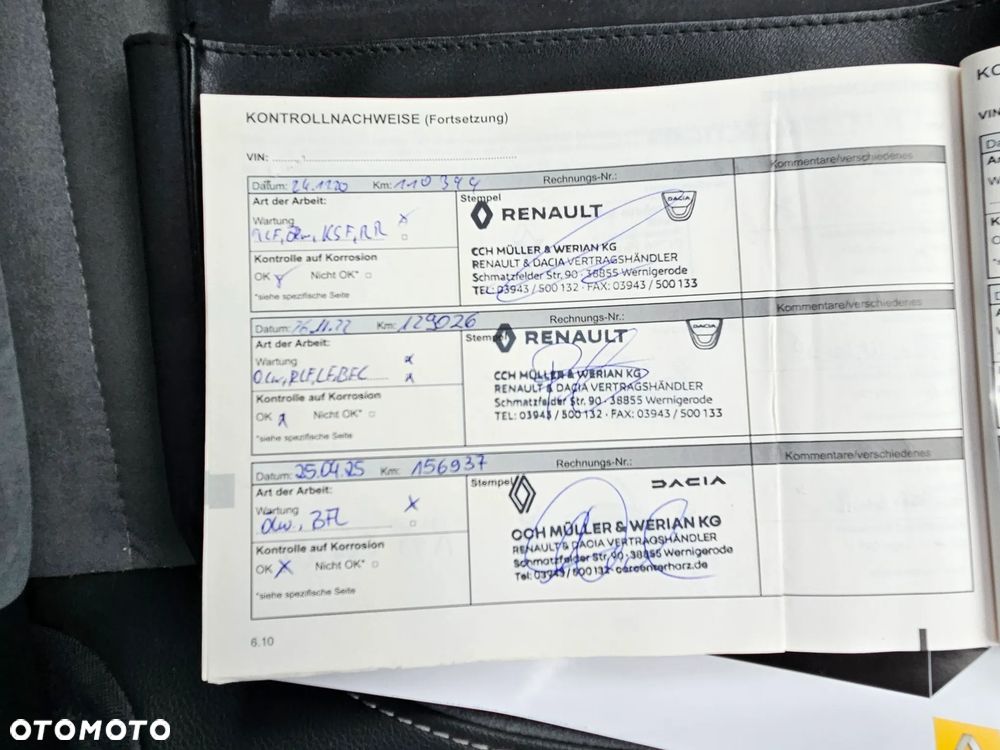 KONTROLLNACHWEISE (Fortsetzung)
VIN:
Datum: 24.11.20 Km: 110 344 Rechnungs-Nr.: Kommentare/verschiedenes
Art der Arbeit:
Wartung
KSF, RR
Kontrolle auf Korrosion
OK Nicht OK*
*siehe spezifische Seite
Stempel
RENAULT DACIA
CCH MÜLLER & WERIAN KG
RENAULT & DACIA VERTRAGSHÄNDLER
Schmatzfelder Str. 90 · 38855 Wernigerode
TEL: 03943 / 500 132 · FAX: 03943 / 500 133
Datum: 26.11.22 Km: 129026 Rechnungs-Nr.: Kommentare/verschiedenes
Art der Arbeit:
Wartung
Ölw, RLF, LF, BFL
Kontrolle auf Korrosion
OK Nicht OK*
*siehe spezifische Seite
Stempel
RENAULT DACIA
CCH MÜLLER & WERIAN KG
RENAULT & DACIA VERTRAGSHÄNDLER
Schmatzfelder Str. 90 · 38855 Wernigerode
TEL: 03943 / 500 132 · FAX: 03943 / 500 133
Datum: 25.04.25 Km: 156937 Rechnungs-Nr.: Kommentare/verschiedenes
Art der Arbeit:
Wartung
Ölw., BFL
Kontrolle auf Korrosion
OK Nicht OK*
*siehe spezifische Seite
Stempel
DACIA
CCH MÜLLER & WERIAN KG
RENAULT & DACIA VERTRAGSHÄNDLER
Schmatzfelder Str. 90 · 38855 Wernigerode
Tel: 03943 / 500 132 · carcenterharz.de
6.10
KO
VIN
OTOMOTO